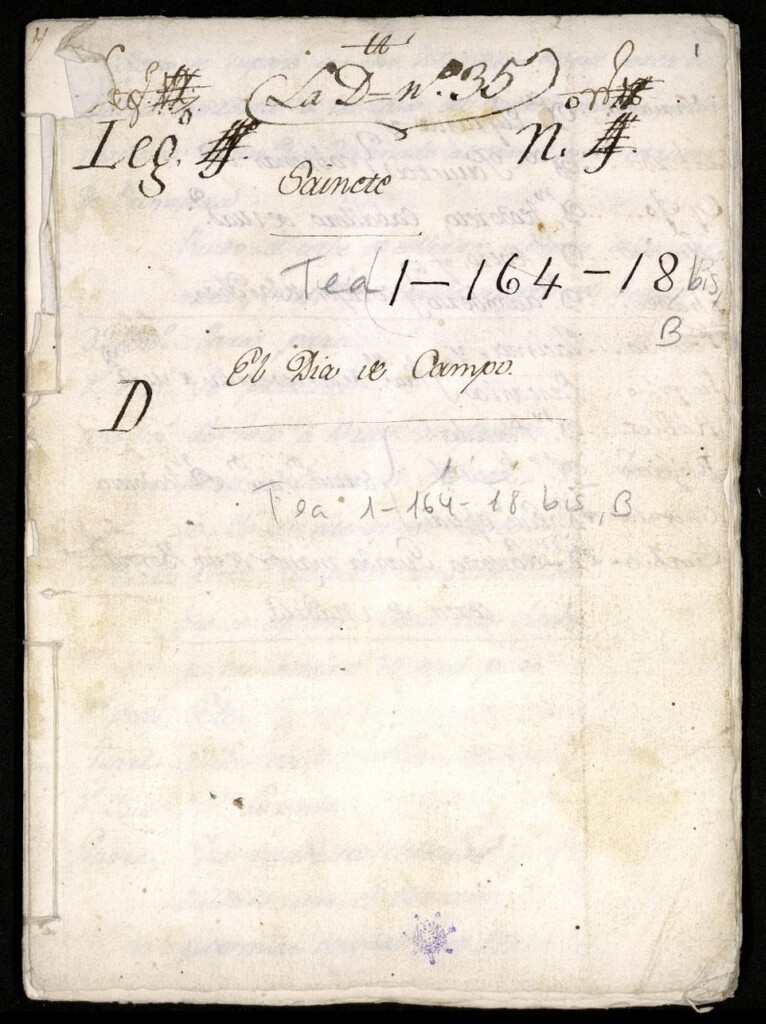 1
La D n.º 35
Leg. N.
Saincte
Tea 1-164-18 bis,
B
El Dia de Campo.
D
Tea 1-164-18 bis, B